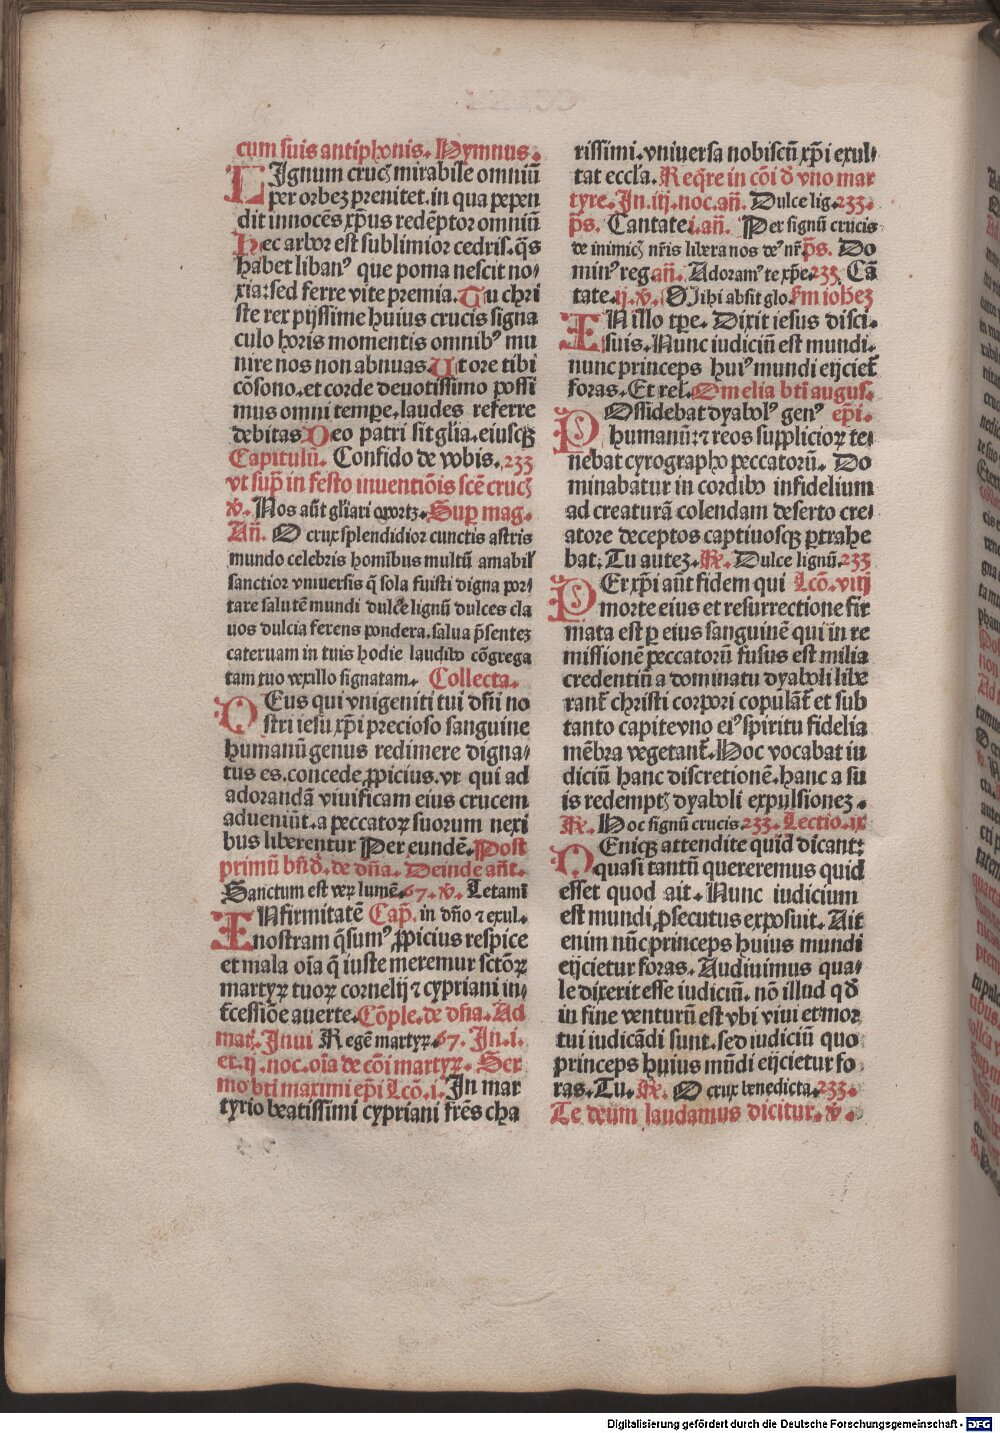 cum suis antiphonis. Hymnus.
LIgnum cruc̄ mirabile omniū
per orbeꝫ prenitet. in qua pepen
dit innocēs xp̄us redēptor omniū
Hec arbor est sublimior cedris. q̄s
habet libanꝰ que poma nescit no⸗
xia: sed ferre vite premia. Tu chri
ste rex pijssime huius crucis signa
culo horis momentis omnibꝰ mu
nire nos non abnuas. Ut ore tibi
cōsono. et corde deuotissimo possi
mus omni tempe. laudes referre
debitas Deo patri sit glīa. eiusqꝫ
Capitulū. Confido de vobis. 233
vt sup̄ in festo inuentiōis scē cruc̄
v̄. Nos aūt gl̄iari oportꝫ. Sup mag.
An̄. O crux splendidior cunctis astris
mundo celebris homībus multū amabil̕
sanctior vniuersis q̄ sola fuisti digna por⸗
tare salutē mundi dulce lignū dulces cla
uos dulcia ferens pondera. salua p̄senteꝫ
cateruam in tuis hodie laudibꝰ cōgrega
tam tuo vexillo signatam. Collecta.
DEus qui vnigeniti tui dn̄i no
stri iesu xp̄i precioso sanguine
humanū genus redimere digna⸗
tus es. concede ꝓpicius. vt qui ad
adorandā viuificam eius crucem
adueniūt. a peccatoꝝ suorum nexi
bus liberentur Per eundē. Post
primū bn̄d̄. de dn̄a. Deinde an̄t.
Sanctum est veꝝ lumē. 67. v̄. Letami
INfirmitatē Cap̄. in dn̄o ⁊ exul.
nostram q̄sumꝰ ꝓpicius respice
et mala oīa q̄ iuste meremur sctōꝝ
martyꝝ tuoꝝ cornelij ⁊ cypriani in⸗
t̄cessiōe auerte. Cōple. de dn̄a. Ad
mat̄. Inui Regē martyꝝ. 67. In. i.
et. ij. noc. oīa de cōi martyꝝ. Ser
mo bt̄i maximi ep̄i Lcō. i. In mar
tyrio beatissimi cypriani fr̄es cha
rissimi. vniuersa nobiscū xp̄i exul⸗
tat eccl̄a. Req̄re in cōi d̄ vno mar
tyre. In. iij. noc. an̄. Dulce lig. 233.
p̄s. Cantate. i. an̄. Per signū crucis
de inimic̄ nr̄is libera nos deꝰ nr̄ p̄s. Do
minꝰ reg an̄. Adoramꝰ te xp̄e. 233 Cā
tate. ij. v̄. Mihi absit glo. Fm ioh̄eꝫ
IN illo tp̄e. Dixit iesus disci.
suis. Nunc iudiciū est mundi.
nunc princeps huiꝰ mundi eijciet̄
foras. Et rel. Omelia bt̄i augus.
POssidebat dyabolꝰ genꝰ ep̄i.
humanū: ⁊ reos supplicioꝝ te⸗
nebat cyrographo peccatorū. Do
minabatur in cordibꝰ infidelium
ad creaturā colendam deserto cre⸗
atore deceptos captiuosqꝫ ꝑtrahe
bat: Tu auteꝫ. R̄. Dulce lignū. 233
PEr xp̄i aūt fidem qui Lcō. viij
morte eius et resurrectione fir
mata est ꝑ eius sanguinē qui in re
missionē peccatorū fusus est milia
credentiū a dominatu dyaboli libe
rant̄ christi corpori copulāt̄ et sub
tanto capite vno eiꝰ spiritu fidelia
mēbra vegetant̄. Hoc vocabat iu
diciū hanc discretionē. hanc a su
is redempt̄ dyaboli expulsioneꝫ.
R̄. Hoc signū crucis. 233. Lectio. ix
DEnicꝫ attendite quid dicant:
quasi tantū quereremus quid
esset quod ait. Nunc iudicium
est mundi ꝓsecutus exposuit. Ait
enim nūc princeps huius mundi
eijcietur foras. Audiuimus qua⸗
le dixerit esse iudiciū. nō illud qd̄
in fine venturū est vbi viui et mor
tui iudicādi sunt. sed iudiciū quo
princeps huius mūdi eijcietur fo
ras. Tu. R̄. O crux benedicta. 233.
Te deum laudamus dicitur. v̄.
Digitalisierung gefördert durch die Deutsche Forschungsgemeinschaft - DFG